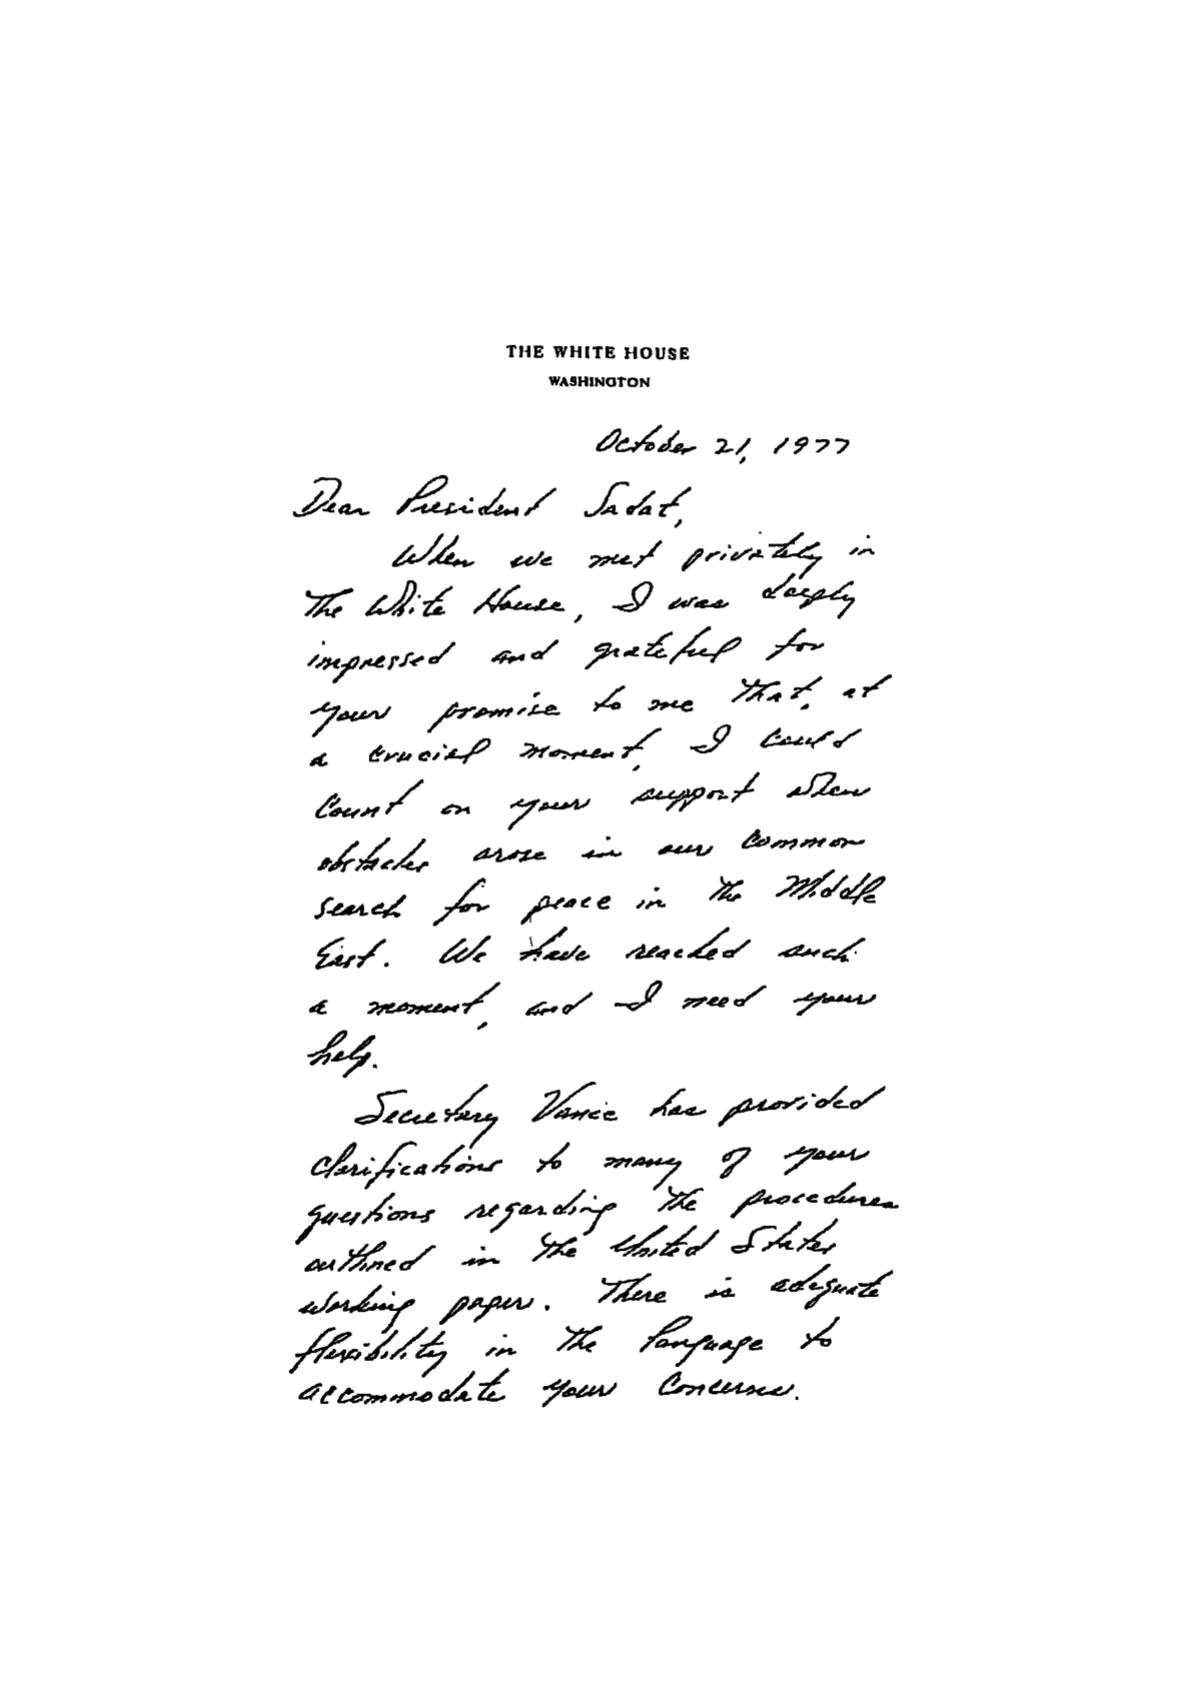 THE WHITE HOUSE
WASHINGTON
October 21, 1977
Dear President Sadat,
When we met privately in
the White House, I was deeply
impressed and grateful for
your promise to me that, at
a crucial moment, I could
count on your support when
obstacles arose in our common
search for peace in the Middle
East. We have reached such
a moment, and I need your
help.
Secretary Vance has provided
clarifications to many of your
questions regarding the procedures
outlined in the United States
working paper. There is adequate
flexibility in the language to
accommodate your concerns.